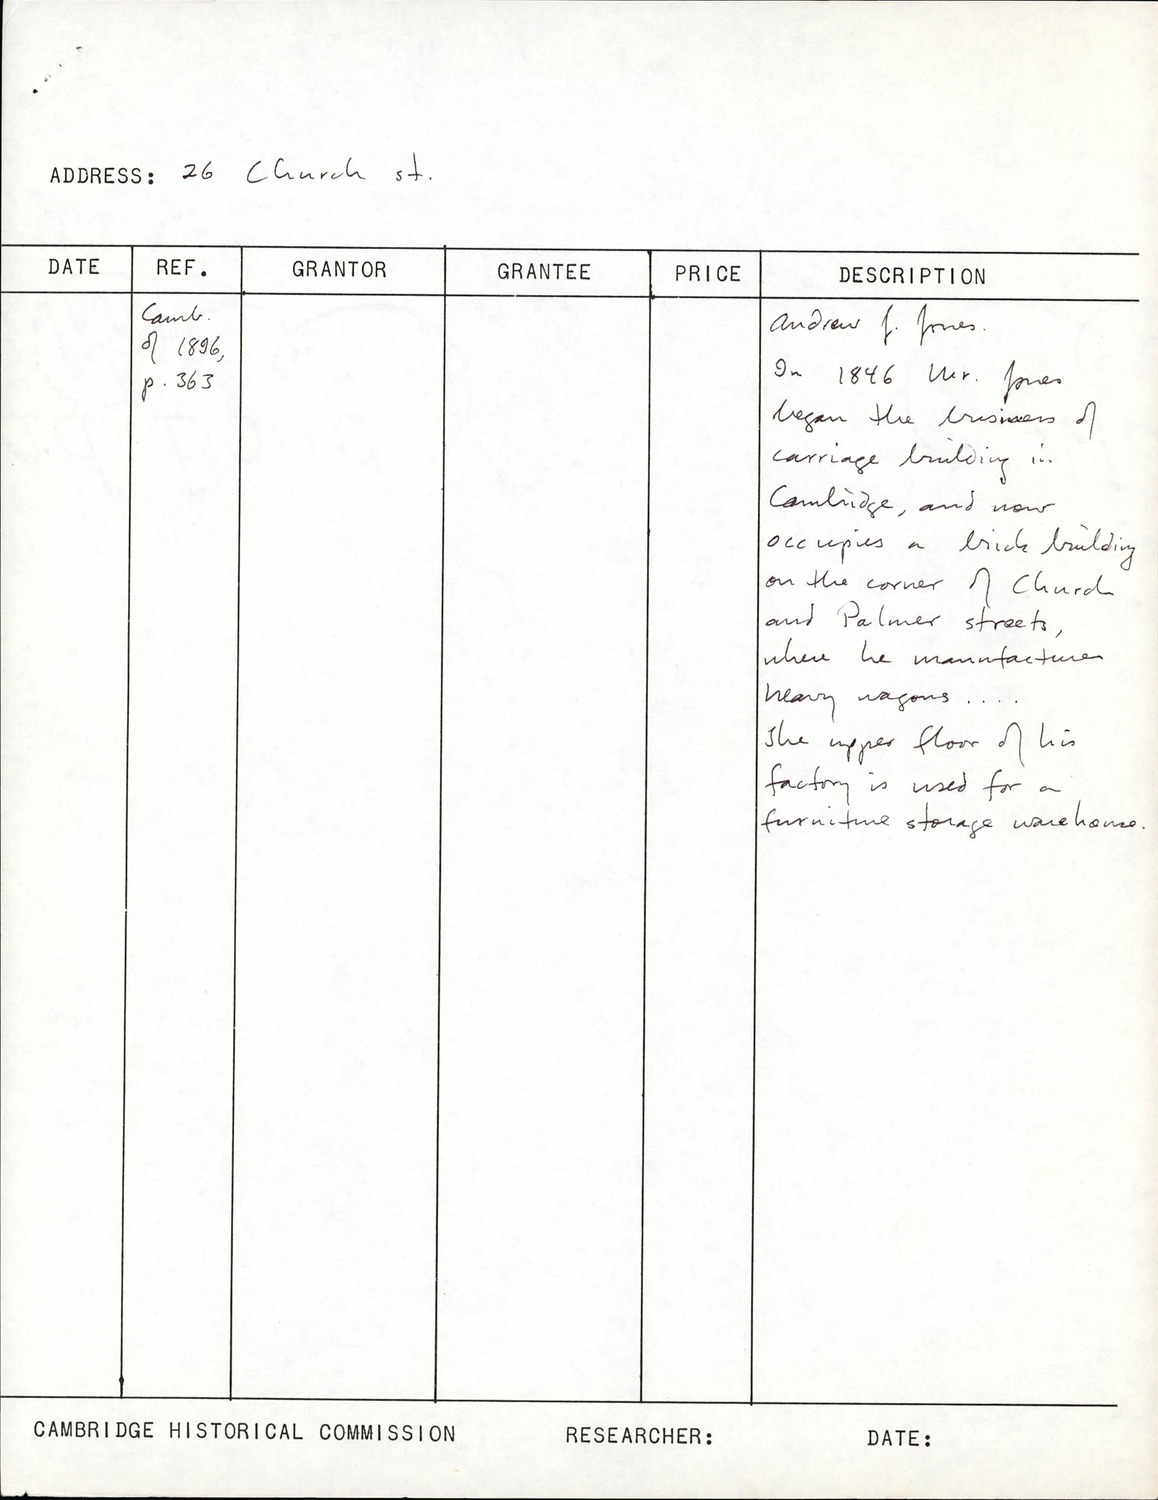 ADDRESS: 26 Church st.
DATE REF. GRANTOR GRANTEE PRICE DESCRIPTION
Camb.
of 1896,
p. 363
Andrew J. Jones.
In 1846 Mr. Jones
began the business of
carriage building in
Cambridge, and now
occupies a brick building
on the corner of Church
and Palmer streets,
where he manufactures
heavy wagons ....
The upper floor of his
factory is used for a
furniture storage warehouse.
CAMBRIDGE HISTORICAL COMMISSION RESEARCHER: DATE: